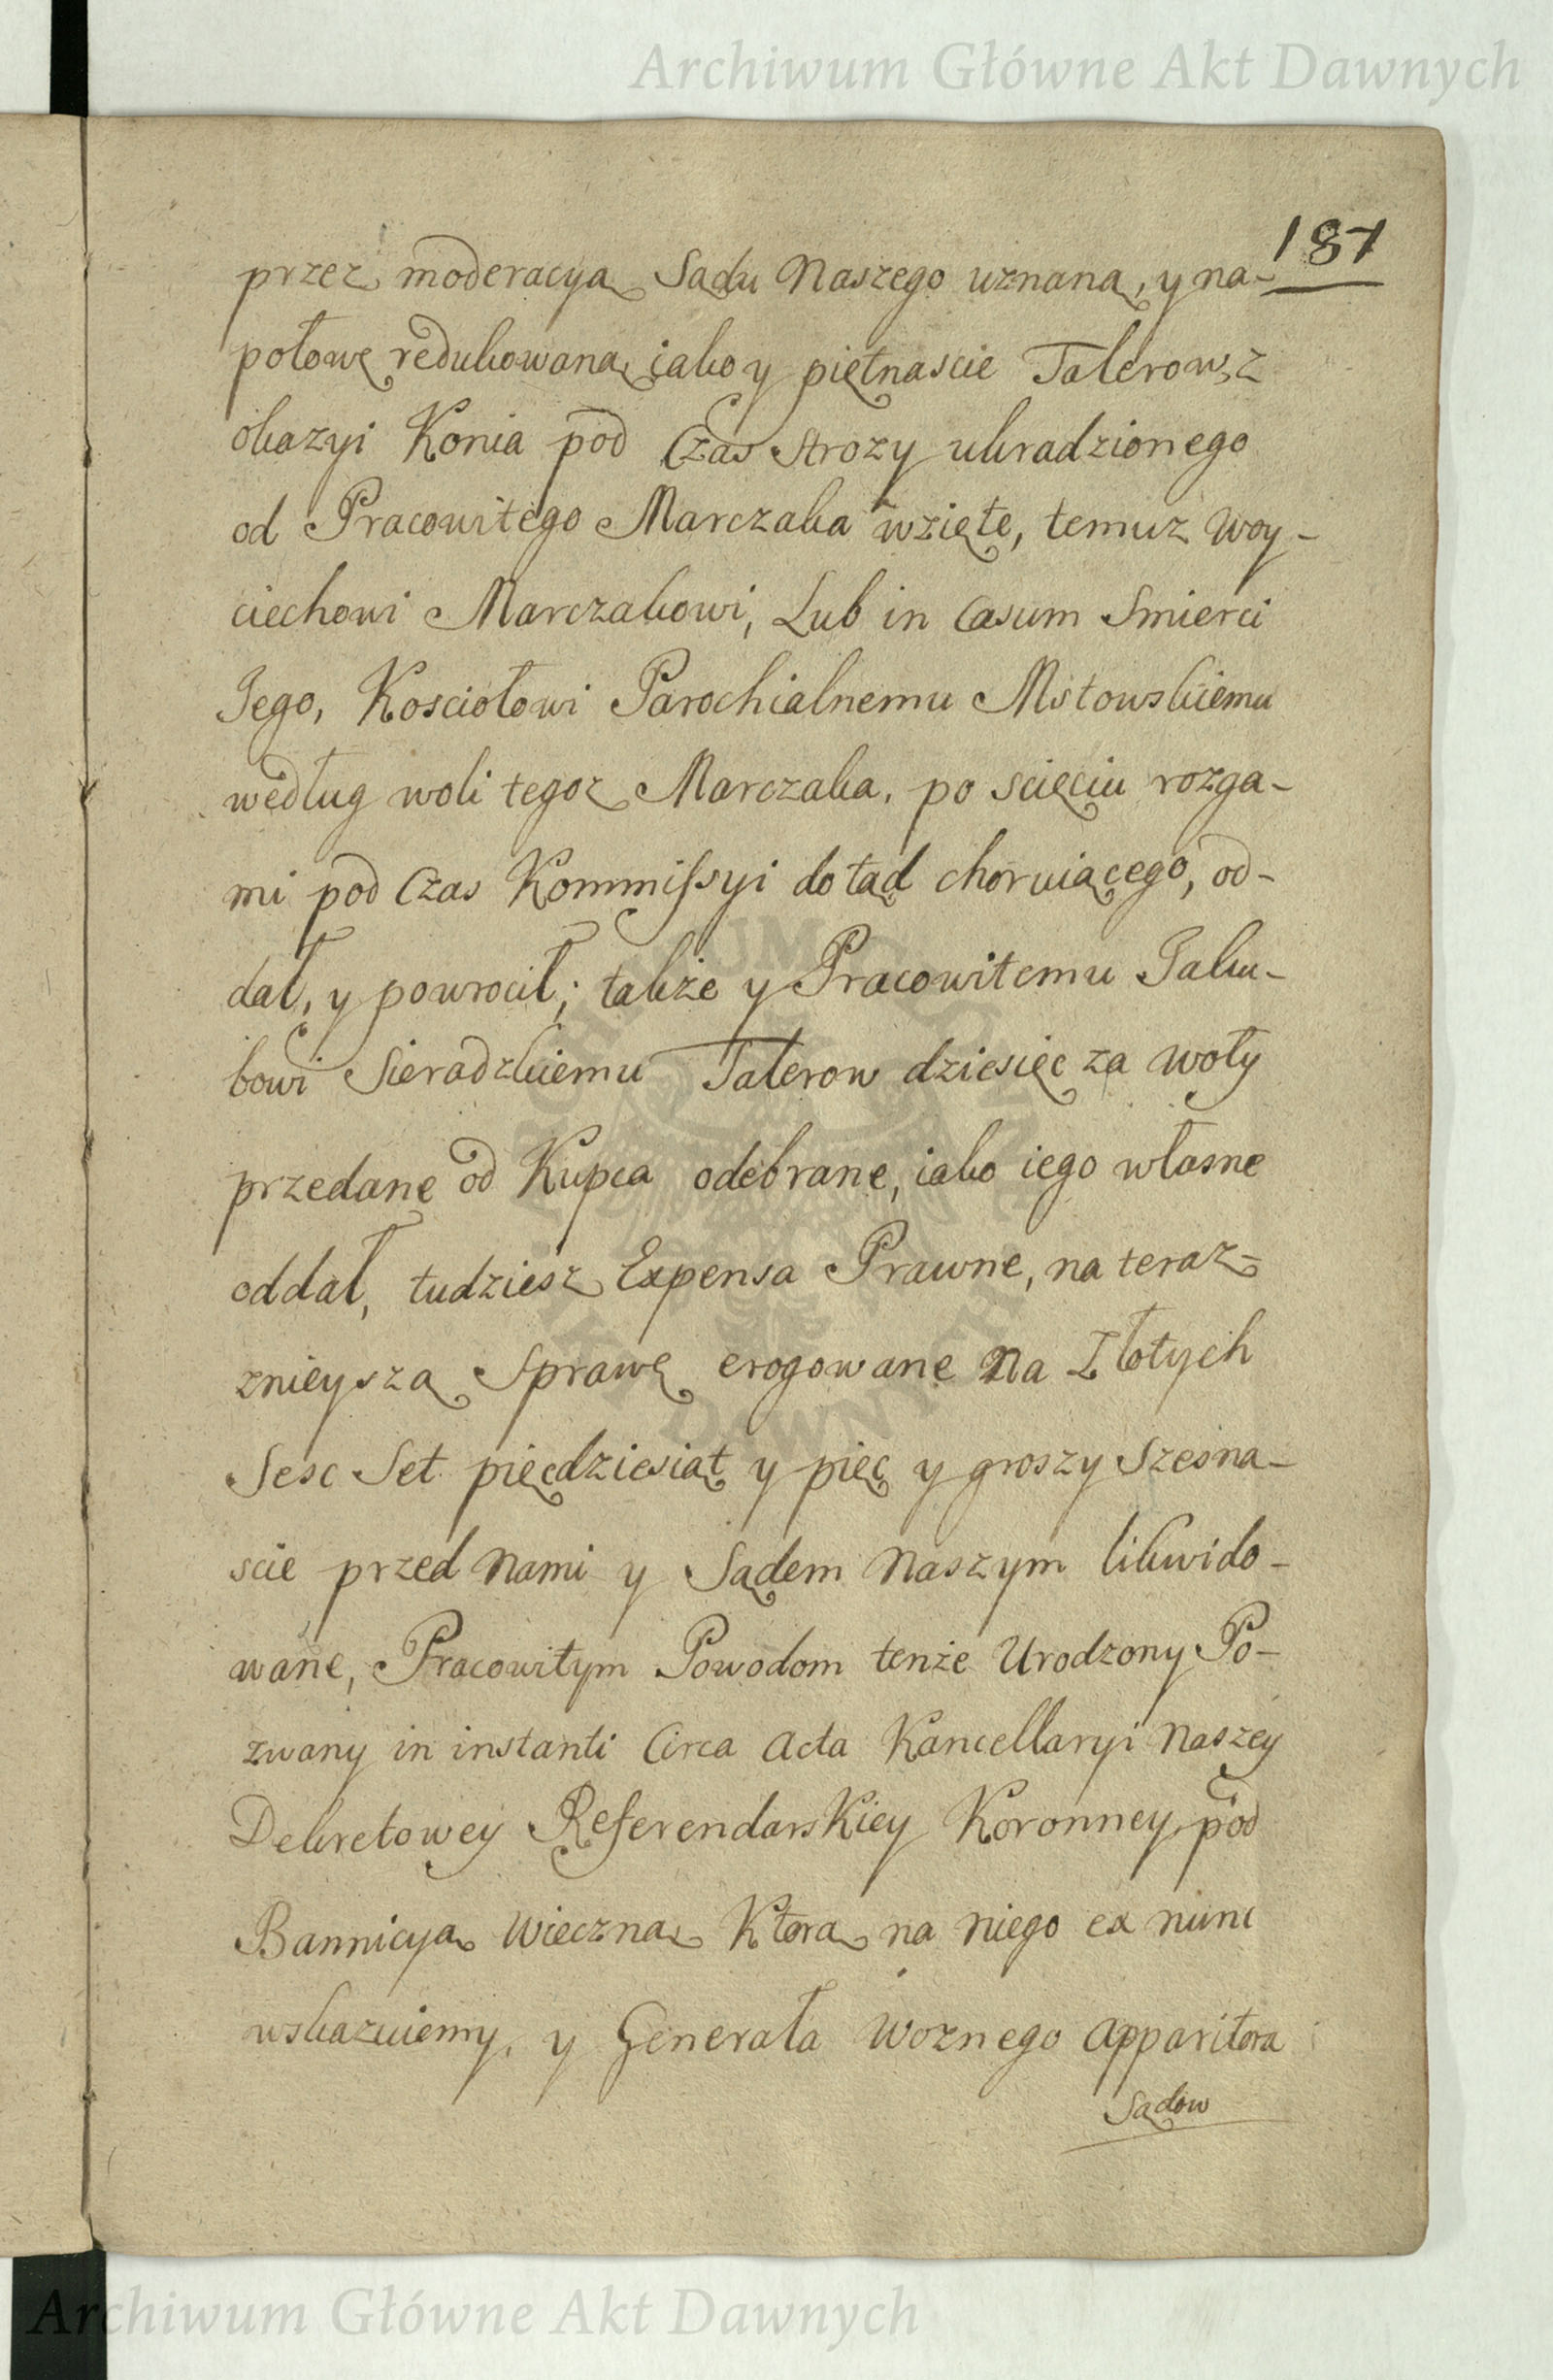 Archiwum Główne Akt Dawnych
187
przez moderacyą Sądu Naszego uznaną, y na-
połowę redukowaną, iako y piętnascie Talerow, z
okazyi Konia pod Czas strozy ukradzionego
od Pracowitego Marczaka wzięte, temuz Woy-
ciechowi Marczakowi, Lub in Casum Smierci
Jego, Kosciołowi Parochialnemu Mstowskiemu
według woli tegoz Marczaka, po scięciu rozga-
mi pod Czas Kommissyi do tąd choruiącego, od-
dał, y powrocił; także y Pracowitemu Jaku-
bowi Sieradzkiemu Talerow dziesięc za woły
przedane od Kupca odebrane, iako iego własne
oddał, tudziesz Expensa Prawne, na teraz-
znieyszą Sprawę erogowane na Złotych
Sesc Set pięcdziesiąt y pięc y groszy Szesna-
scie przed Nami y Sądem Naszym likwido-
wane, Pracowitym Powodom tenże Urodzony Po-
zwany in instanti Circa Acta Kancellaryi Naszey
Dekretowey Referendarskiey Koronney, pod
Bannicyą Wieczną Ktorą na niego ex nunc
wskazuiemy, y Generała Woznego Apparitora
Sądow
Archiwum Główne Akt Dawnych